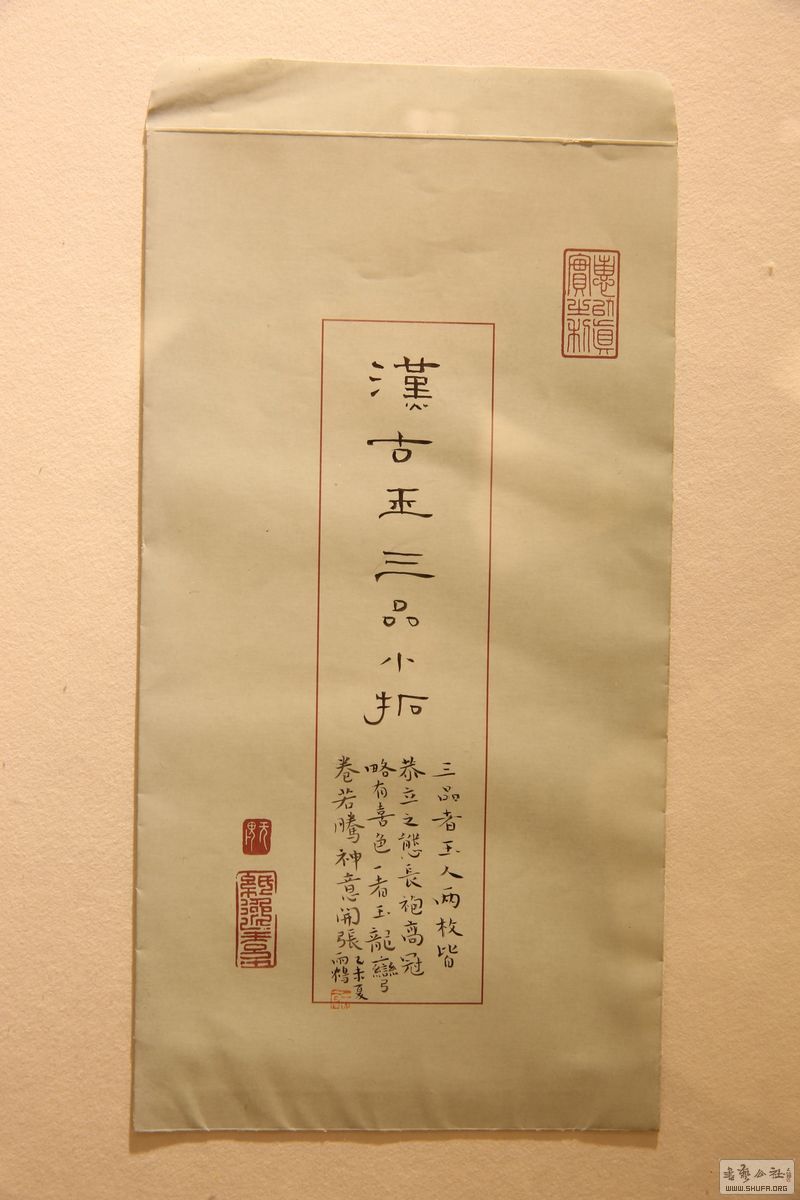 漢古玉三品小拓
三品者玉人兩枚皆
恭立之態長袍高冠
略有喜色一者玉龍彎
卷若騰神意開張
乙未夏
雨鶴
書藝公社
WWW.SHUFA.ORG